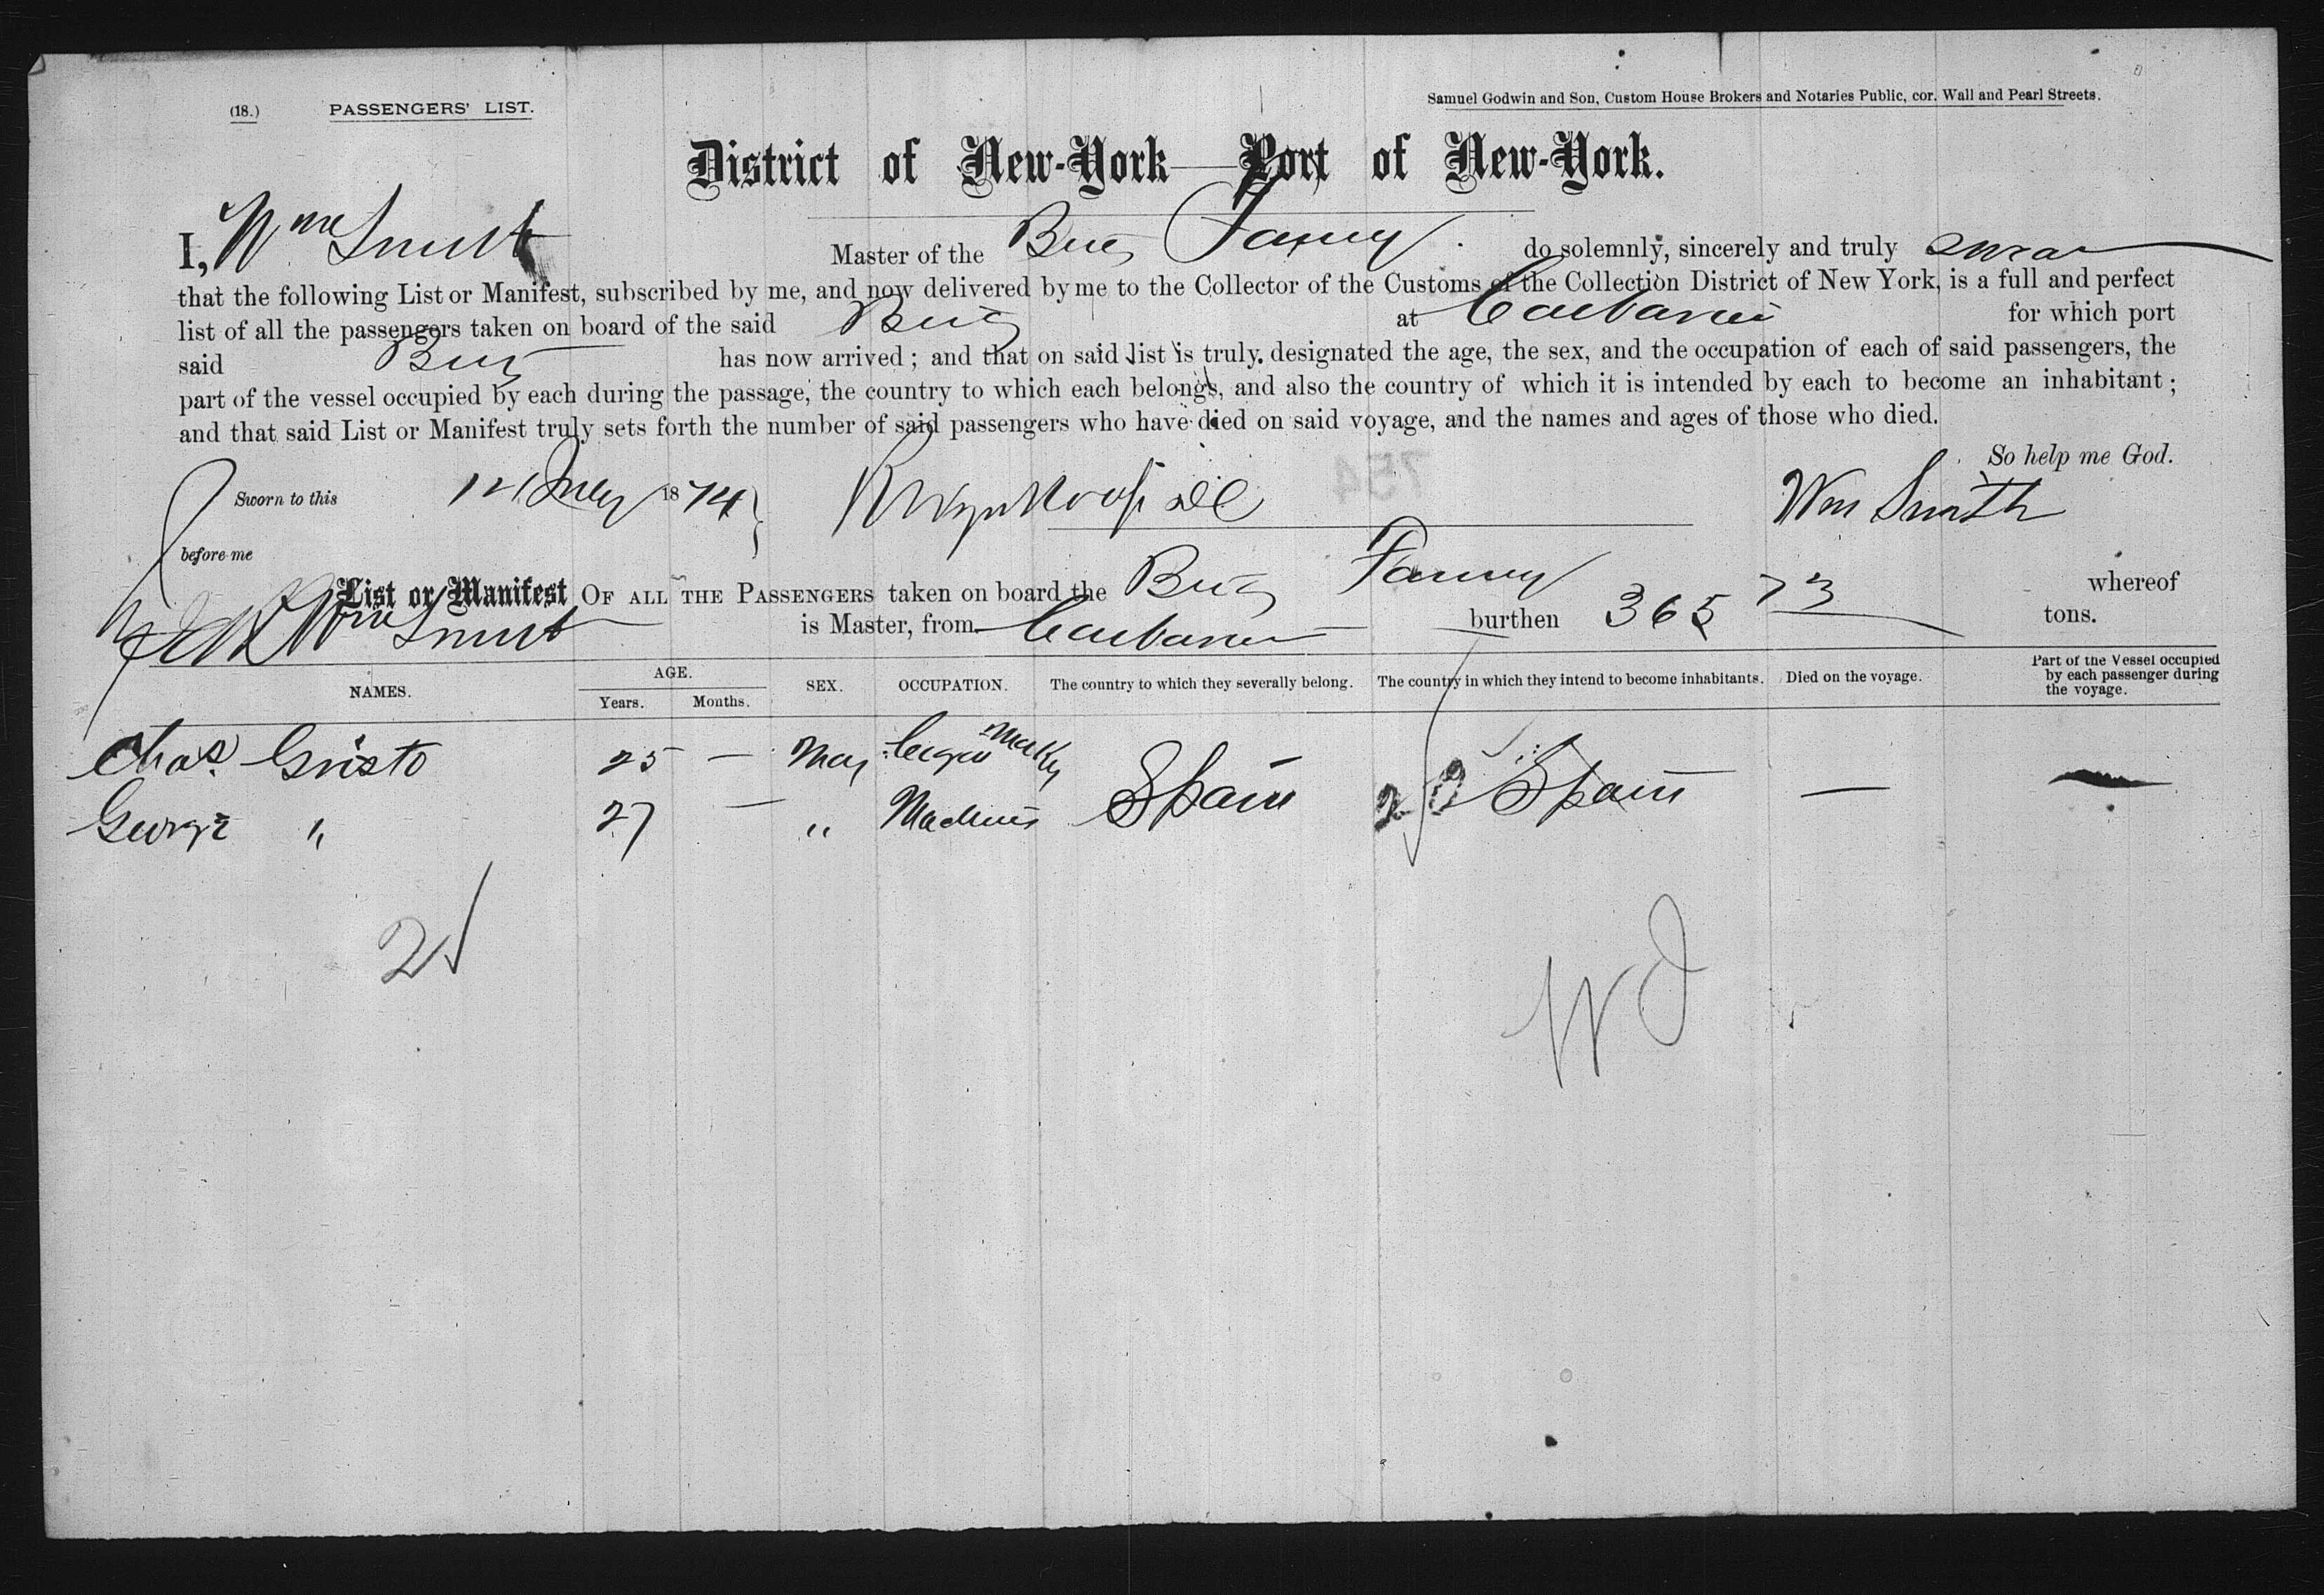 (18.) PASSENGERS' LIST. Samuel Godwin and Son, Custom House Brokers and Notaries Public, cor. Wall and Pearl Streets.
District of New-York—Port of New-York.
I, Wm Smith Master of the Brig Fanny do solemnly, sincerely and truly swear
that the following List or Manifest, subscribed by me, and now delivered by me to the Collector of the Customs of the Collection District of New York, is a full and perfect
list of all the passengers taken on board of the said Brig at Caibarien for which port
said Brig has now arrived; and that on said list is truly designated the age, the sex, and the occupation of each of said passengers, the
part of the vessel occupied by each during the passage, the country to which each belongs, and also the country of which it is intended by each to become an inhabitant;
and that said List or Manifest truly sets forth the number of said passengers who have died on said voyage, and the names and ages of those who died.
So help me God.
Sworn to this 12 1874 Wm Smith
before me
754
List or Manifest OF ALL THE PASSENGERS taken on board the Brig Fanny whereof
Wm Smith is Master, from Caibarien burthen 365 73 tons.
NAMES. AGE. Years. Months. SEX. OCCUPATION. The country to which they severally belong. The country in which they intend to become inhabitants. Died on the voyage. Part of the Vessel occupied by each passenger during the voyage.
Chas. Gristo 25 — Segar Maker Spain 20 Spain —
George " 27 — " Machinis
2